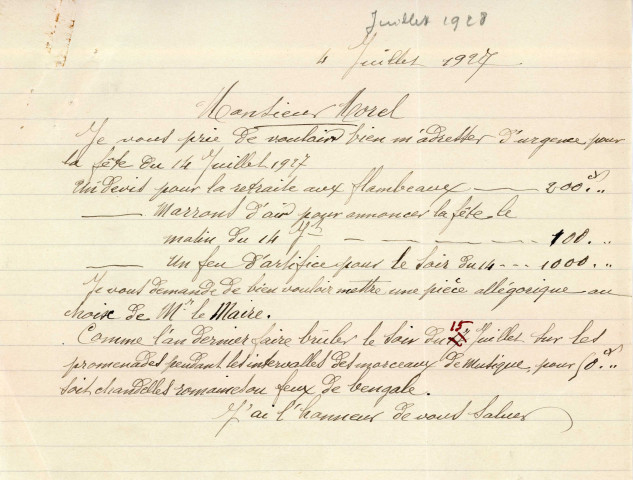 Juillet 1928
4 Juillet 1927.
Monsieur Morel
Je vous prie de vouloir bien m'adresser d'urgence pour
la fête du 14 Juillet 1927
un devis pour la retraite aux flambeaux —— 200.
—— Marrons d'air pour annoncer la fête le
matin du 14 — — — — 100.
—— Un feu d'artifice pour le soir du 14 --- 1000.
Je vous demande de bien vouloir mettre une pièce allégorique au
choix de Mr le Maire.
. Comme l'an dernier faire brûler le soir du 15 Juillet sur les
promenades pendant les intervalles des morceaux de musique, pour 50.
soit chandelles romaines ou feux de bengale.
J'ai l'honneur de vous saluer